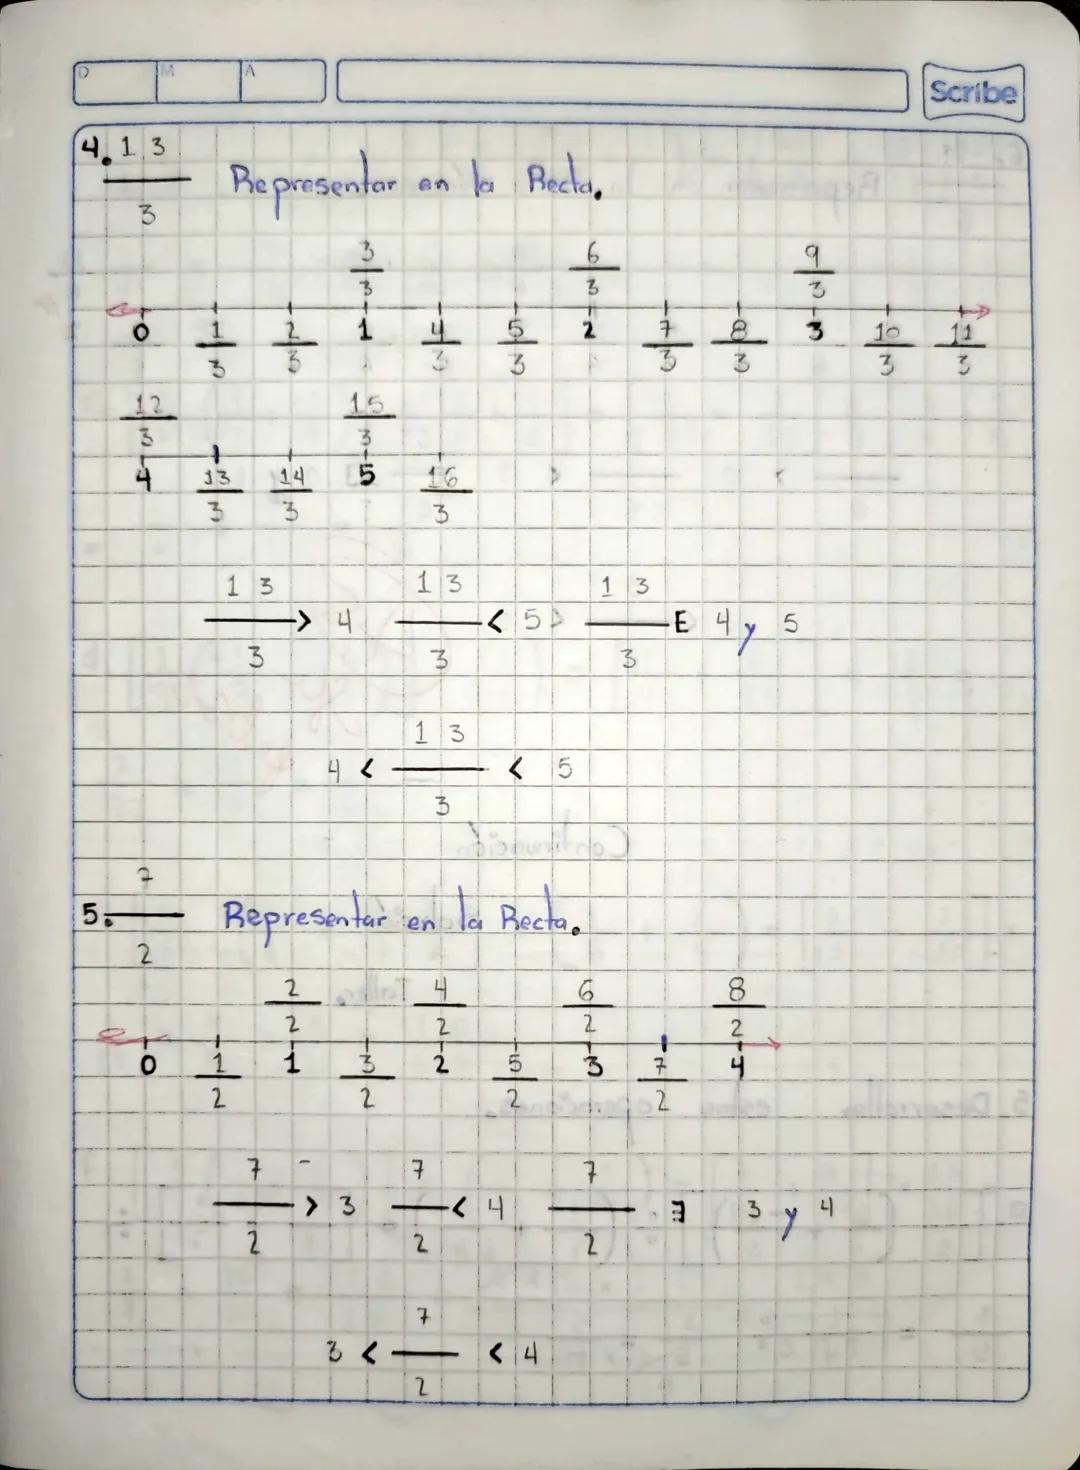 D M A Scribe
4. 13/3 Representar en la Recta.
3/3 6/3 9/3
0 1/3 2/3 1 4/3 5/3 2 7/3 8/3 3 10/3 11/3
12/3 15/3
4 13/3 14/3 5 16/3
13/3 > 4 13/3 < 5 13/3 E 4 y 5
4 < 13/3 < 5
5. 7/2 Representar en la Recta.
2/2 4/2 6/2 8/2
0 1/2 1 3/2 2 5/2 3 7/2 4
7/2 > 3 7/2 < 4 7/2 ∃ 3 y 4
3 < 7/2 < 4